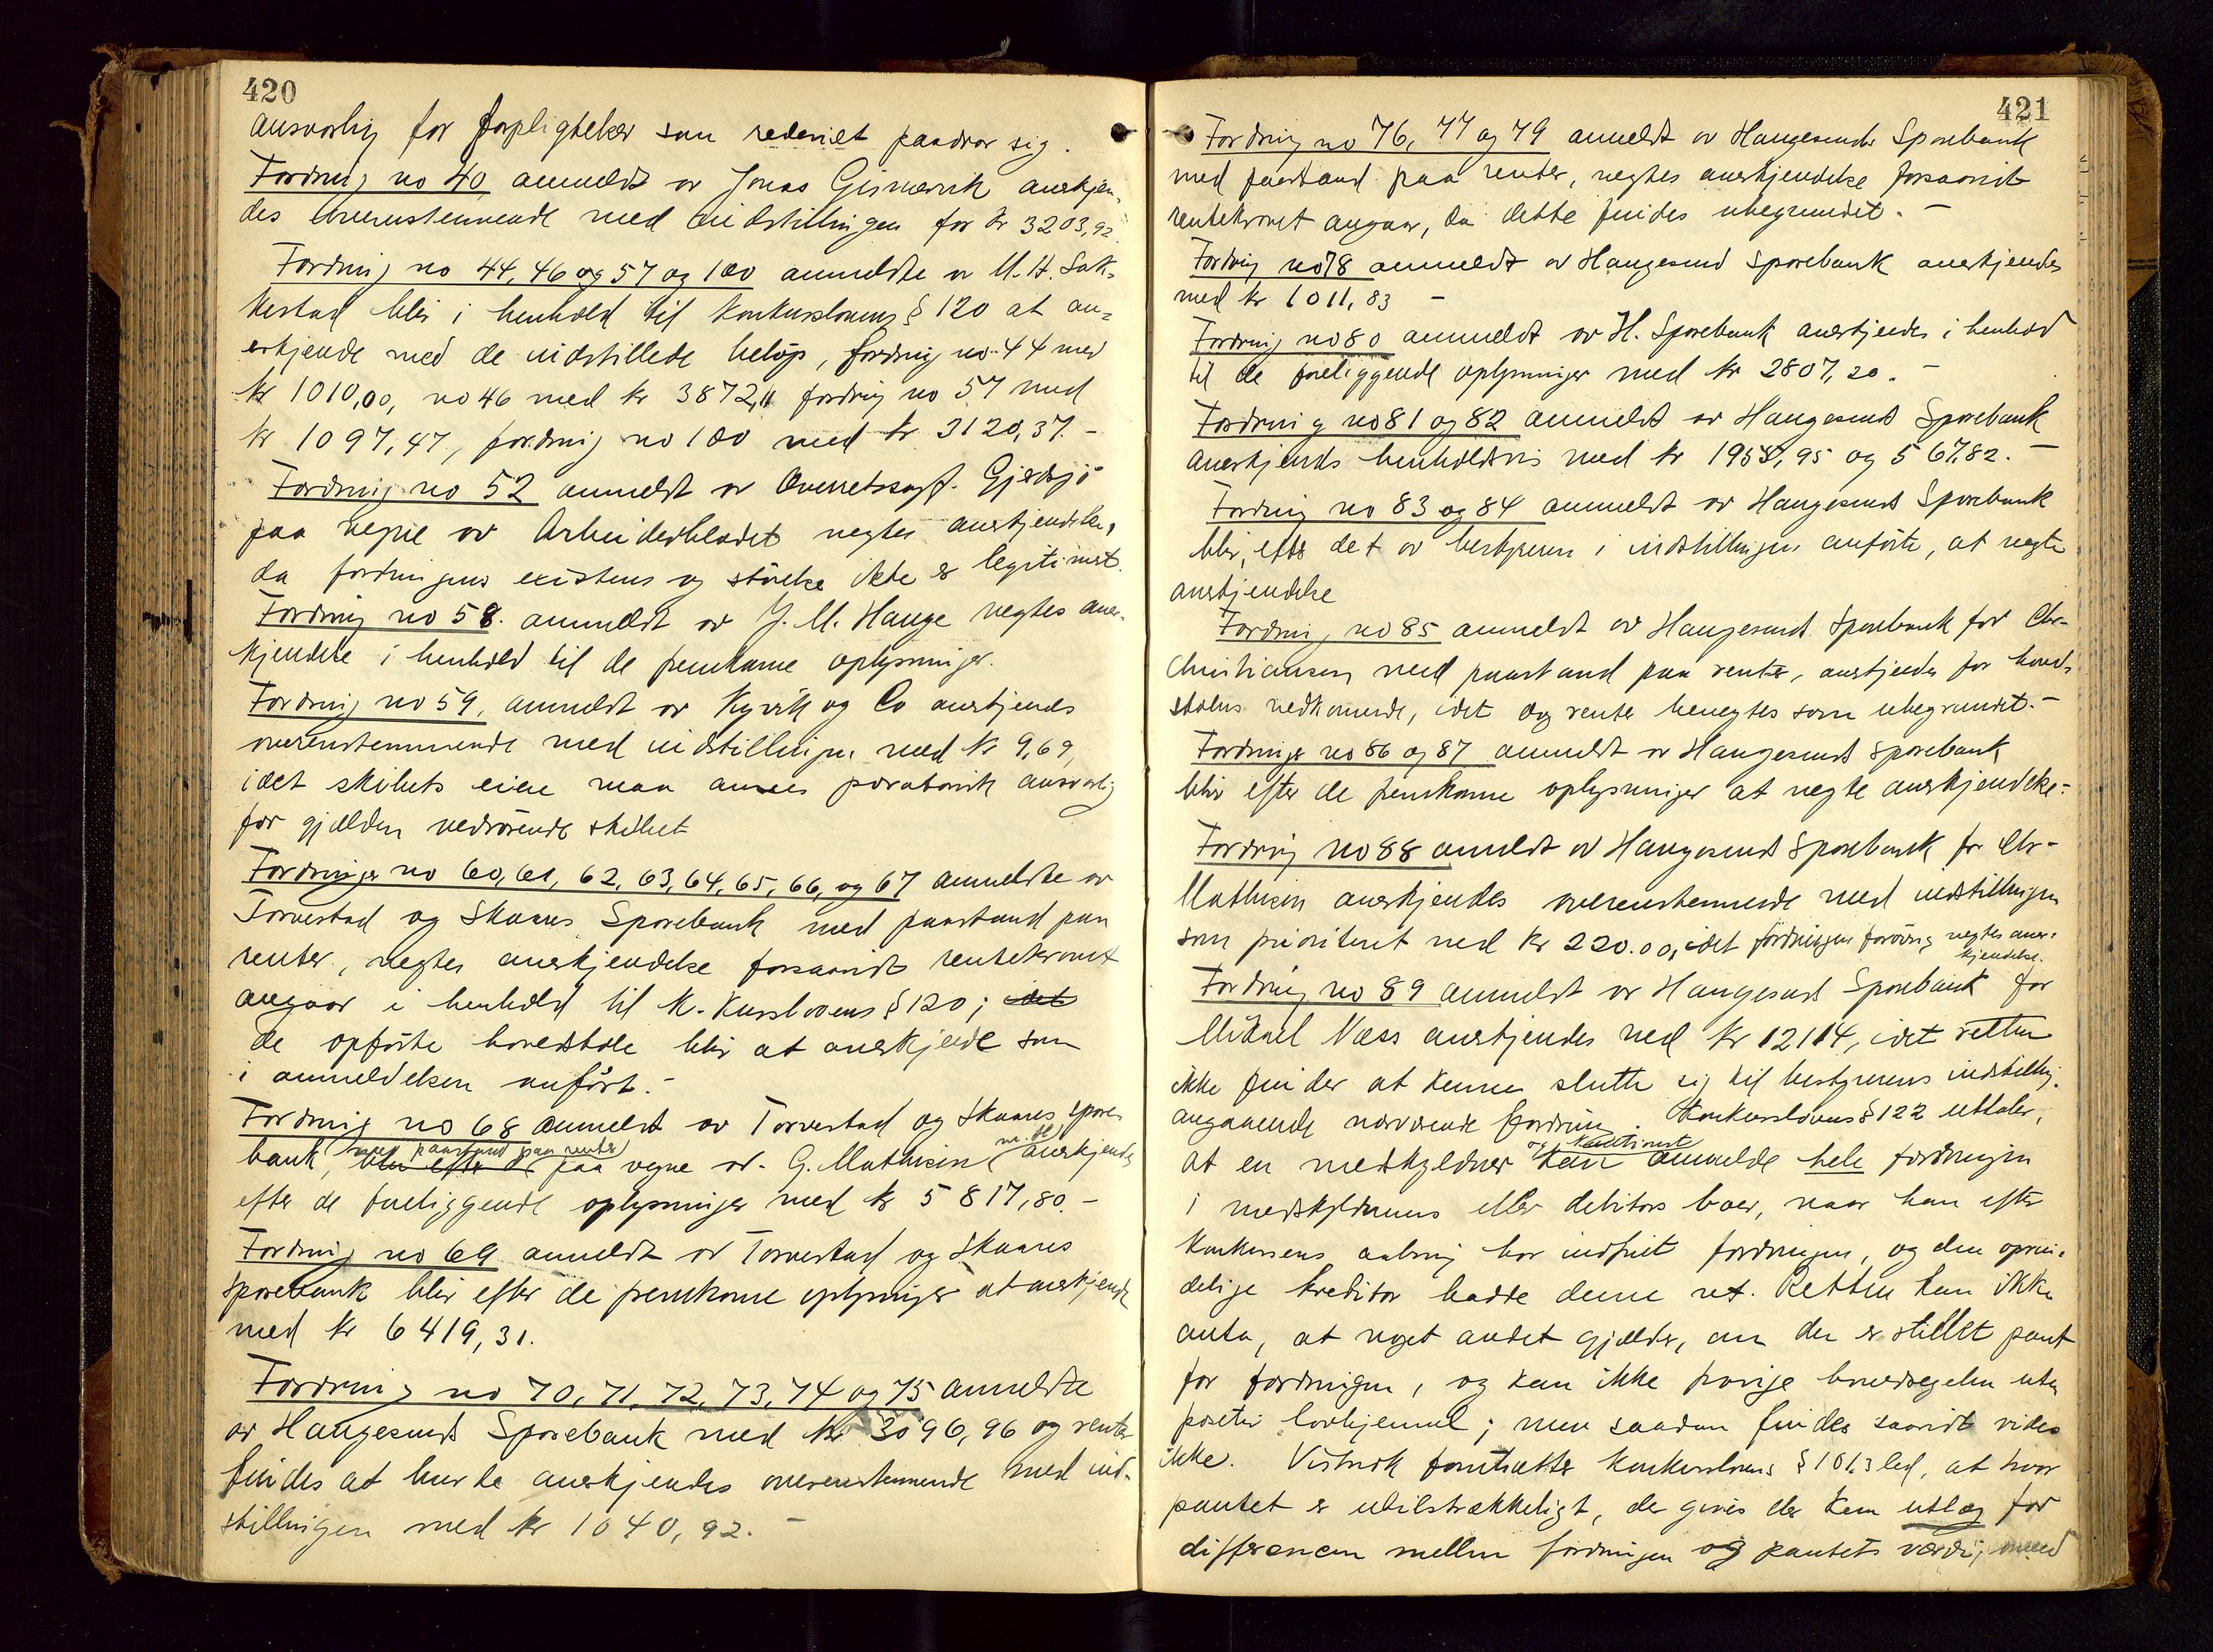 420
ansvarlig for forpligtelser som rederiet paadrar sig.
Fordring no 40 anmeldt av Jonas Gismervik anerkjen-
des overenstemmende med indstillingen for kr 3203,92.
Fordring no 44, 46 og 57 og 100 anmeldte av M. H. Sak-
kestad blir i henhold til Konkurslovens § 120 at an-
erkjende med de indstillede beløp, fordring no 44 med
kr 1010,00, no 46 med kr 3872,11 fordring no 57 med
kr 1097,47, fordring no 100 med kr 3120,37. -
Fordring no 52 anmeldt av Overretssagf. Gjerdsjø
paa vegne av Arbeiderbladet negtes anerkjendelse,
da fordringens existens og størrelse ikke er legitimert.
Fordring no 58. anmeldt av J. M. Hauge negtes aner-
kjendelse i henhold til de fremkomne oplysninger.
Fordring no 59, anmeldt av Kyvik og Co anerkjendes
overenstemmende med indstillingen med kr 9,69,
idet skibets eiere maa ansees prorataviit ansvarlig
for gjælden vedrørende skibet
Fordringer no 60, 61, 62, 63, 64, 65, 66, og 67 anmeldte av
Torvestad og Skaares Sparebank med paastand paa
renter, negtes anerkjendelse forsaavidt rentekravet
angaar i henhold til K. Kurslovens § 120; idet
de opførte hovedstole blir at anerkjende som
i anmeldelsen anført. -
Fordring no 68 anmeldt av Torvestad og Skaares spare-
bank, med paastand paa renter blir efter de paa vegne av G. Mathisen anerkjendes
efter de foreliggende oplysninger med kr 5817,80. -
Fordring no 69 anmeldt av Torvestad og Skaares
sparebank blir efter de fremkomne oplysninger at anerkjende
med kr 6419,31.
Fordring no 70, 71, 72, 73, 74 og 75 anmeldte
av Haugesunds Sparebank med kr 3096,96 og renter
findes at burde anerkjendes overenstemmende med ind-
stillingen med kr 1040,92. -
421
Fordring no 76, 77 og 79 anmeldt av Haugesunds Sparebank
med paastand paa renter, negtes anerkjendelse forsaavidt
rentekravet angaar, da dette findes ubegrundet. -
Fordring no 78 anmeldt av Haugesund Sparebank anerkjendes
med kr 1011,83 -
Fordring no 80 anmeldt av H. Sparebank anerkjendes i henhold
til de foreliggende oplysninger med kr 2807,20. -
Fordring no 81 og 82 anmeldt av Haugesunds Sparebank
anerkjendes henholdsvis med kr 1955,95 og 567,82. -
Fordring no 83 og 84 anmeldt av Haugesunds Sparebank
blir, efter det av bestyreren i indstillingen anførte, at negte
anerkjendelse
Fordring no 85 anmeldt av Haugesunds Sparebank for Chr.
Christiansen med paastand paa renter, anerkjendes for hoved-
stolens vedkommende, idet og renter benegtes som ubegrundet. -
Fordringer no 86 og 87 anmeldt av Haugesunds sparebank
blir efter de fremkomne oplysninger at negte anerkjendelse. -
Fordring no 88 anmeldt av Haugesunds Sparebank for Chr.
Mathisen anerkjendes overenstemmende med indstillingen
som prioritert med kr 220.00, idet fordringen forøvrig negtes aner-
kjendelse.
Fordring no 89 anmeldt av Haugesunds Sparebank for
Mikael Næss anerkjendes med kr 12114, idet retten
ikke finder at kunne slutte sig til bestyrerens indstilling
angaaende nærværende fordring. Konkurslovens § 122 uttaler,
at en medskyldner og kautionist kan anmelde hele fordringen
i medskyldnerens eller debitors boer, naar han efter
Konkursens aabning har indfriet fordringen, og den oprin-
delige kreditor hadde denne ret. Retten kan ikke
anta, at noget andet gjælder, om der er stillet pant
for fordringen, og kan ikke fravige hovedregelen uten
positiv lovhjemmel; men saadan findes saavidt vides
ikke. Vistnok fastsætter Konkurslovens § 101.3 led, at hvor
pantet er utilstrækkeligt, der gives der kun utlæg for
differencen mellem fordringen og pantets værdi; med